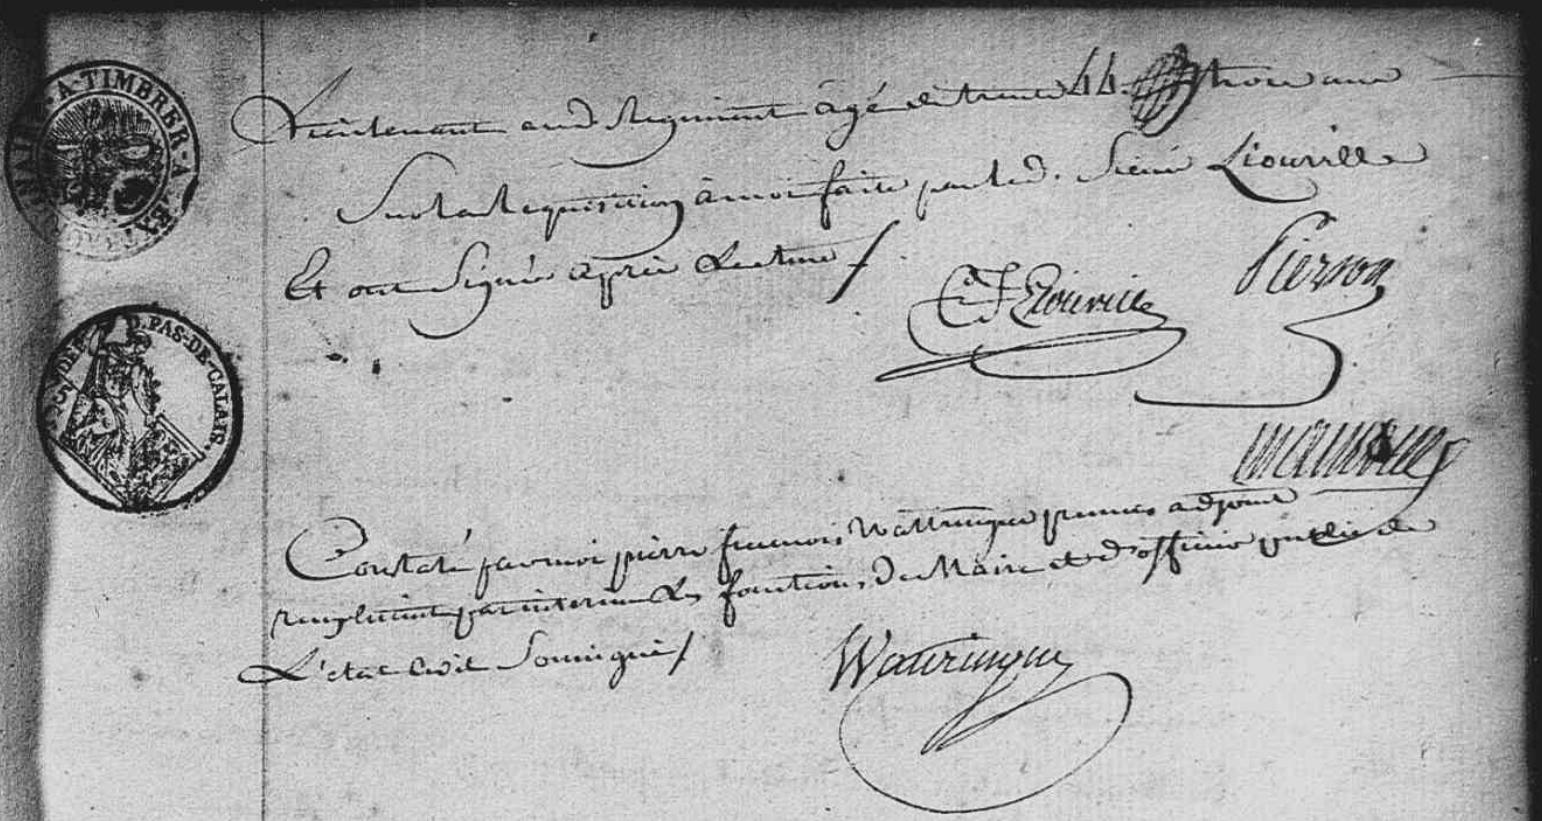 A TIMBRER A EXT
Lieutenant aud Regiment âgé de trente 44 trois ans
Sur la Requisition à moi faite par led. Sieur Liouville
Et ont Signé après Lecture /
Liouville
Pierson
DEP. D. PAS-DE-CALAIS.
Constaté par moi pierre francois Wattringue premier adjoint
remplissant par interim Les fonctions de Maire et d'officier public de
L'état Civil Soussigné /
Wattringue